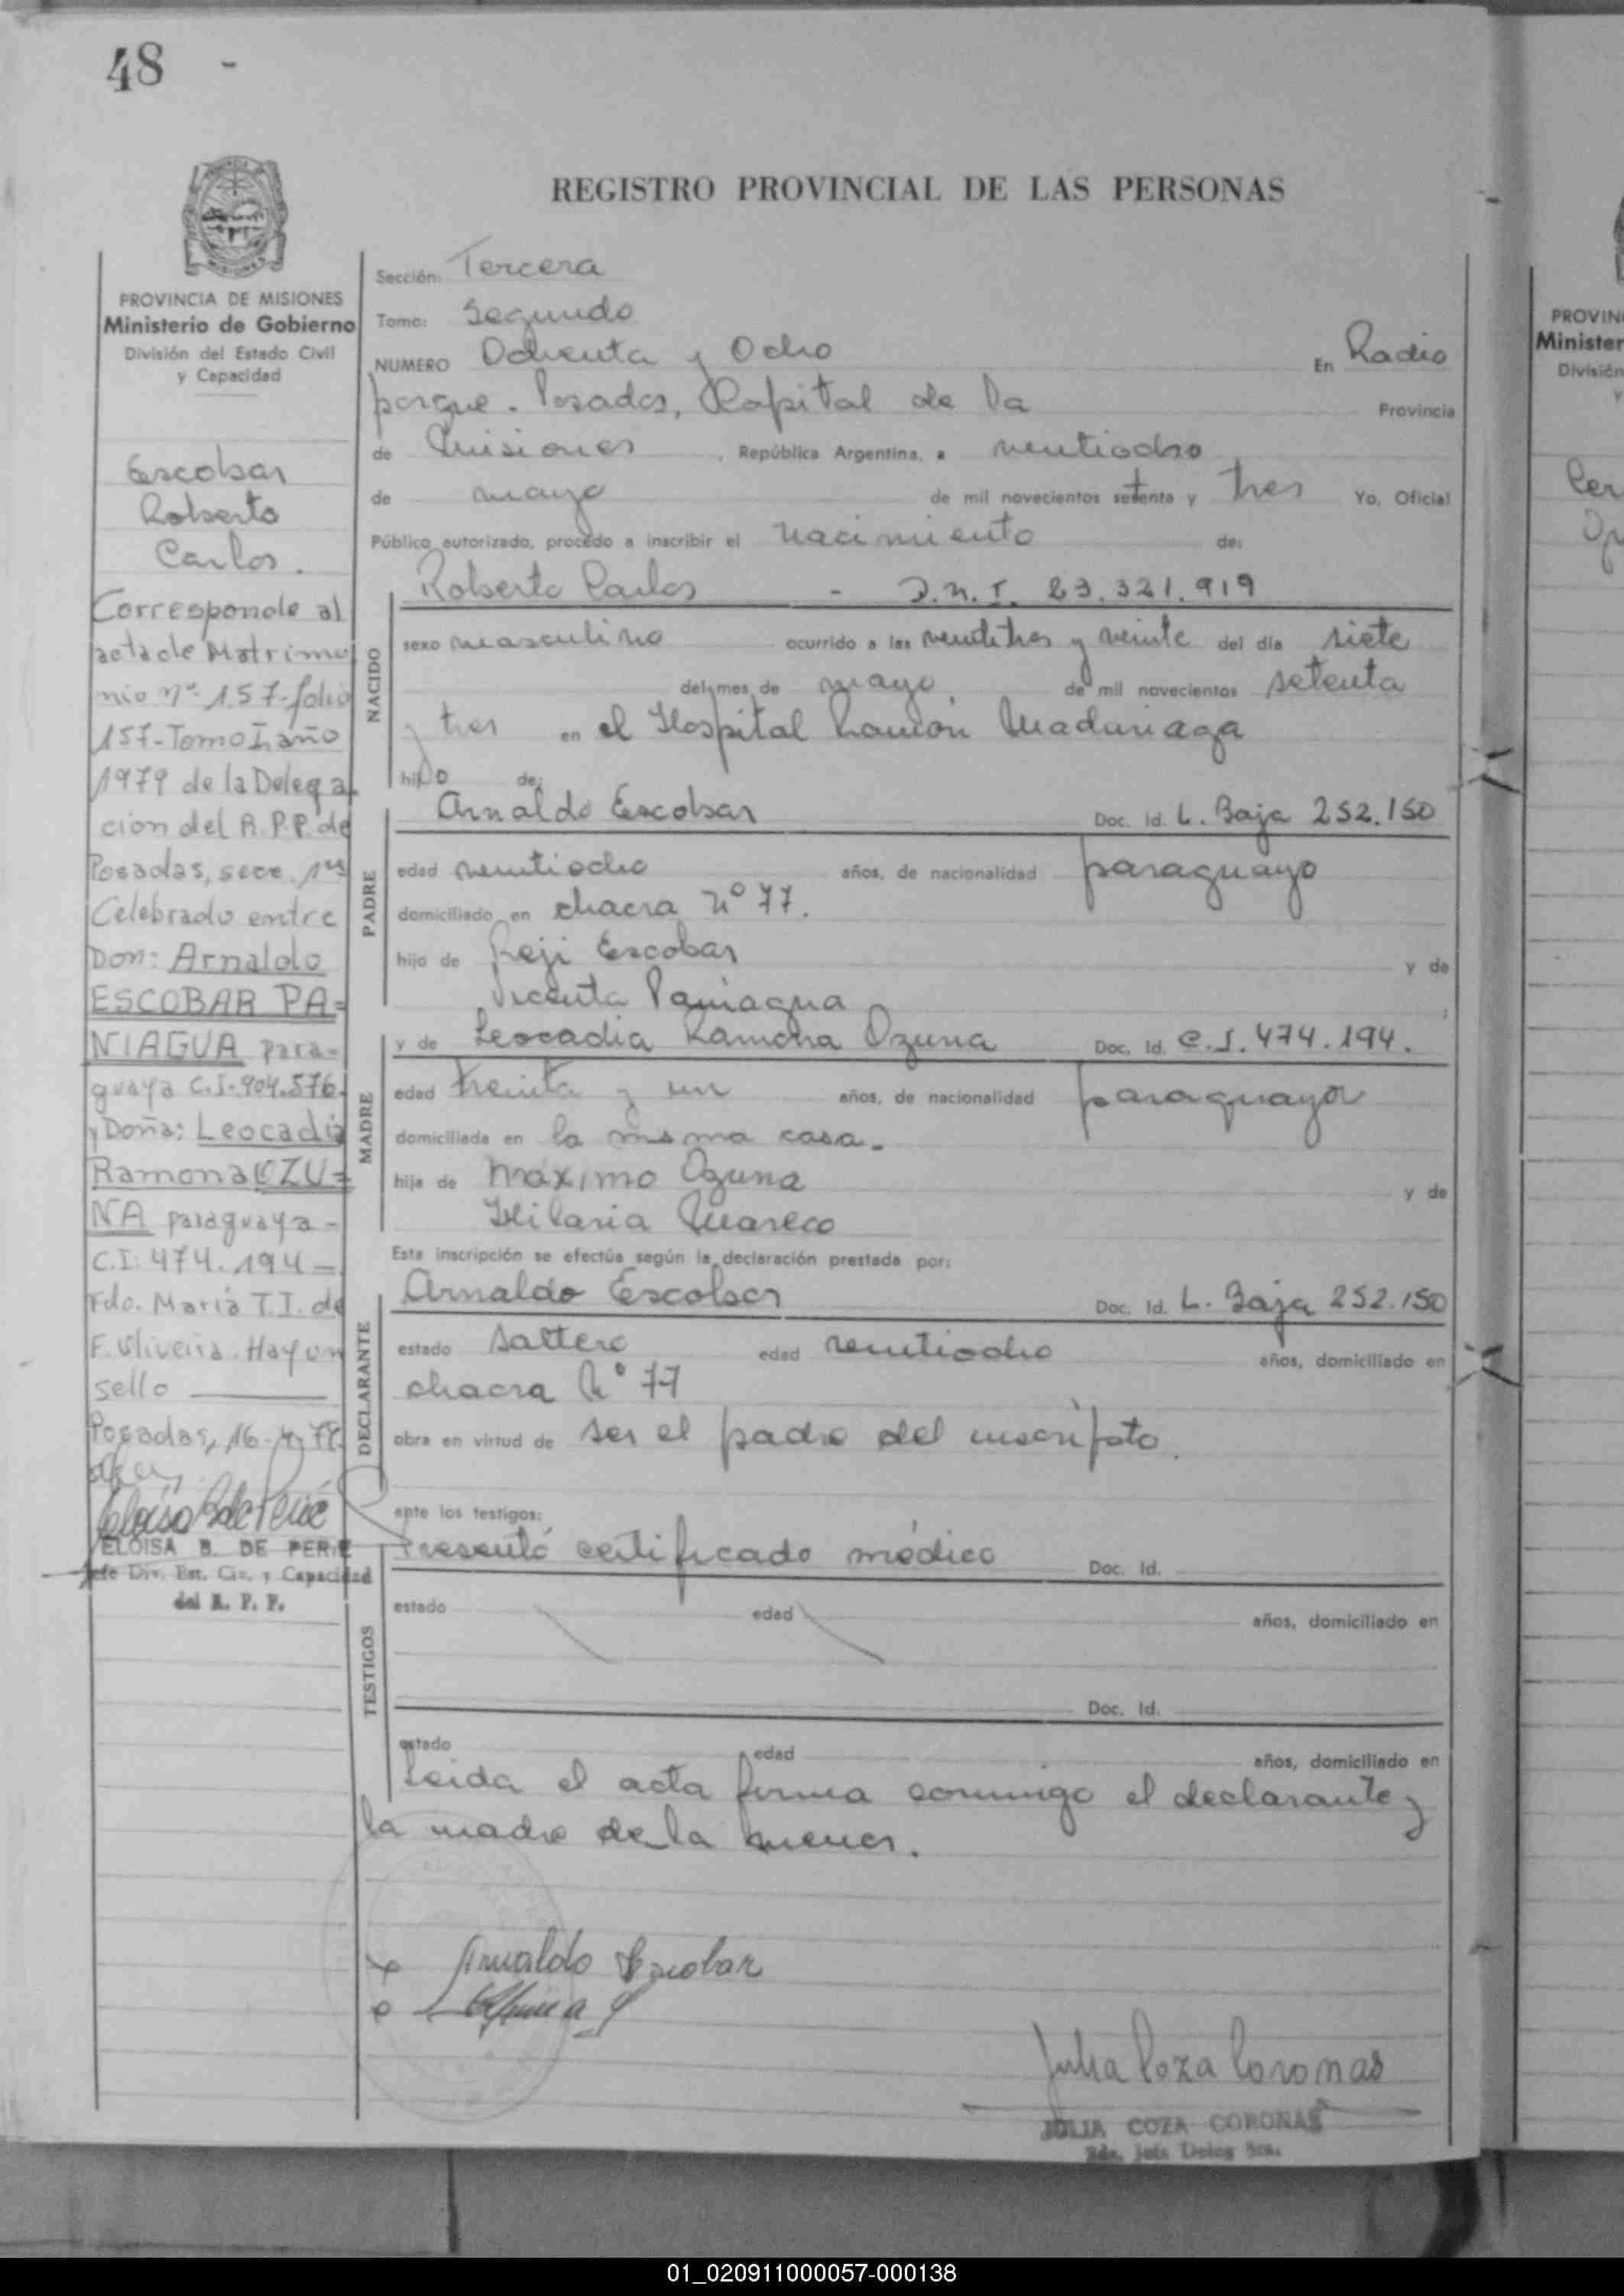 48 -
REGISTRO PROVINCIAL DE LAS PERSONAS
PROVINCIA DE MISIONES
Ministerio de Gobierno
División del Estado Civil
y Capacidad
Escobar
Roberto
Carlos.
Corresponde al
acta de Matrimo
nio nº 157-folio
157-Tomo I año
1979 de la Delega
cion del R.P.P. de
Posadas, secc. 1ra
Celebrado entre
Don: Arnaldo
ESCOBAR PA=
NIAGUA para-
guaya C.I-904.576
y Doña: Leocadia
Ramona OZU=
NA paraguaya-
C.I: 474.194-
Fdo. Maria T.I. de
F. Oliveira. Hay un
sello
Posadas, 16-
ELOISA B. DE PERIE
Jefe Div. Est. Civ. y Capacidad
del R. P. P.
Sección: Tercera
Tomo: Segundo
NUMERO Ochenta y Ocho En Radio
parque. Posadas, Capital de la Provincia
de Misiones, República Argentina, a veintiocho
de mayo de mil novecientos setenta y tres Yo, Oficial
Público autorizado, procedo a inscribir el nacimiento de:
NACIDO
Roberto Carlos - D.N.I. 23.321.919
sexo masculino ocurrido a las veintitres y veinte del día siete
del mes de mayo de mil novecientos setenta
y tres en el Hospital Ramón Madariaga
hijo de:
PADRE
Arnaldo Escobar Doc. Id. L. Baja 252.150
edad veintiocho años, de nacionalidad paraguayo
domiciliado en chacra nº 77.
hijo de Reji Escobar y de
Vicenta Paniagua
MADRE
y de Leocadia Ramona Ozuna Doc. Id. C.I. 474.194.
edad treinta y un años, de nacionalidad paraguaya
domiciliada en la misma casa.
hija de Máximo Ozuna y de
Hilaria Mareco
Esta inscripción se efectúa según la declaración prestada por:
DECLARANTE
Arnaldo Escobar Doc. Id. L. Baja 252.150
estado soltero edad veintiocho años, domiciliado en
chacra Nº 77
obra en virtud de ser el padre del inscripto.
ante los testigos:
TESTIGOS
Presentó certificado médico Doc. Id.
estado edad años, domiciliado en
Doc. Id.
estado edad años, domiciliado en
Leida el acta firma conmigo el declarante y
la madre de la menor.
Arnaldo Escobar
Julia Coza Coronas
JULIA COZA CORONAS
01_020911000057-000138